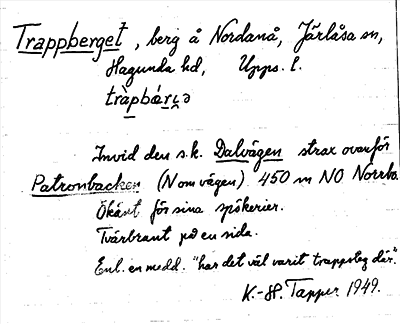 Trappberget, berg å Nordanå, Järlåsa sn,
Hagunda hd, Upps. l.
Invid den s.k. Dalvägen strax ovanför
Patronbacken (N om vägen) 450 m NO Norrbo.
Ökänt för sina spökerier.
Tvärbrant på en sida.
Enl. en medd. "har det väl varit trappsteg där".
K.-H. Tapper 1949.